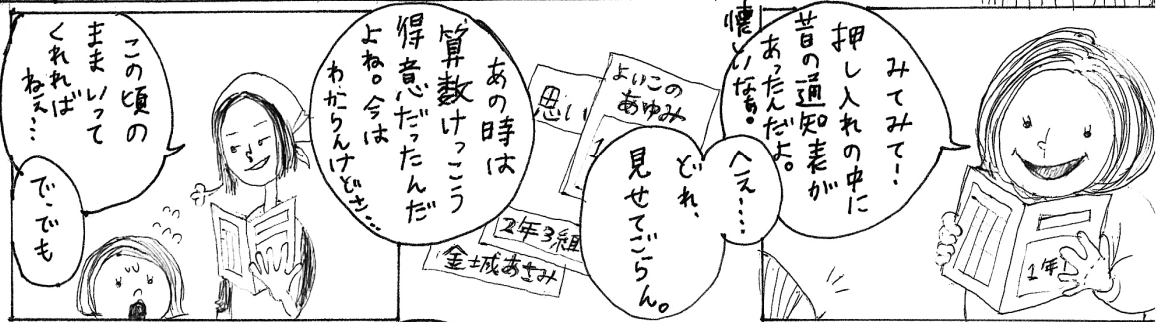 みてみてー!
押し入れの中に
昔の通知表が
あったんだよ。
懐いなぁ。
1年
へえ…。
どれ、
見せてごらん。
よいこの
あゆみ
1
思い
2年3組
金城あさみ
あの時は
算数けっこう
得意だったんだ
よね。今は
わからんけどさ…
この頃の
ままいって
くれれば
ねぇ…
で、でも